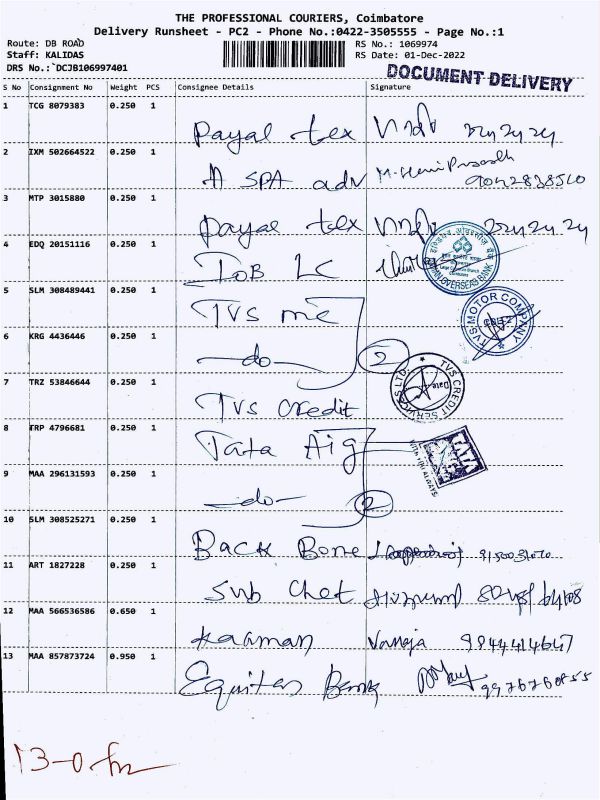 THE PROFESSIONAL COURIERS, Coimbatore
Delivery Runsheet - PC2 - Phone No.:0422-3505555 - Page No.:1
Route: DB ROAD
RS No.: 1069974
Staff: KALIDAS
RS Date: 01-Dec-2022
DRS No.:`DCJB106997401
DOCUMENT DELIVERY
S No Consignment No Weight PCS Consignee Details Signature
1 TCG 8079383 0.250 1
Payal tex
2 IXM 502664522 0.250 1
A SPA adv
3 MTP 3015880 0.250 1
Payal tex
4 EDQ 20151116 0.250 1
IOB LC
OVERSEAS BANK
5 SLM 308489441 0.250 1
TVS mc
TVS MOTOR COMPANY
6 KRG 4436446 0.250 1
-do- 2
7 TRZ 53846644 0.250 1
TVS Credit
TVS CREDIT SERVICES LTD.
Date
8 TRP 4796681 0.250 1
Tata Aig
TATA
WITH YOU ALWAYS
9 MAA 296131593 0.250 1
-do- 2
10 SLM 308525271 0.250 1
Back Bone
11 ART 1827228 0.250 1
Sub Chet
12 MAA 566536586 0.650 1
Kaaman Vanaja 9844414647
13 MAA 857873724 0.950 1
Equitas Bank 9976760855